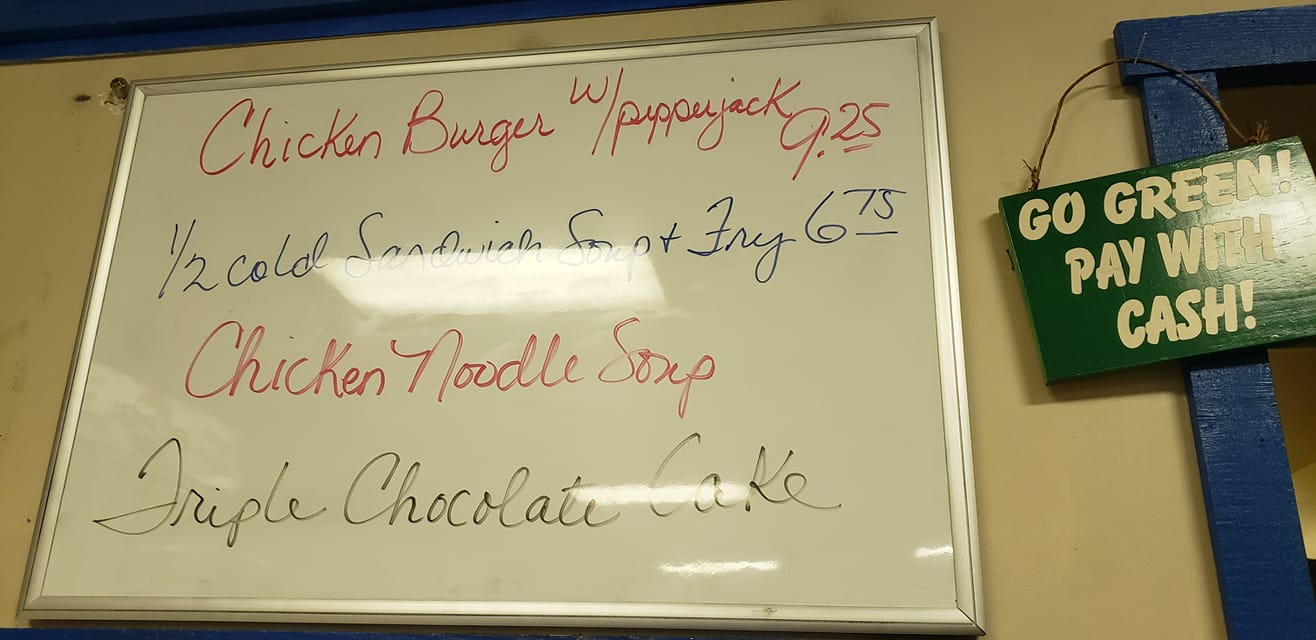 Chicken Burger w/pepperjack 9.25
1/2 cold Sandwich Soup + Fry 6 75
Chicken Noodle Soup
Triple Chocolate Cake
GO GREEN!
PAY WITH
CASH!